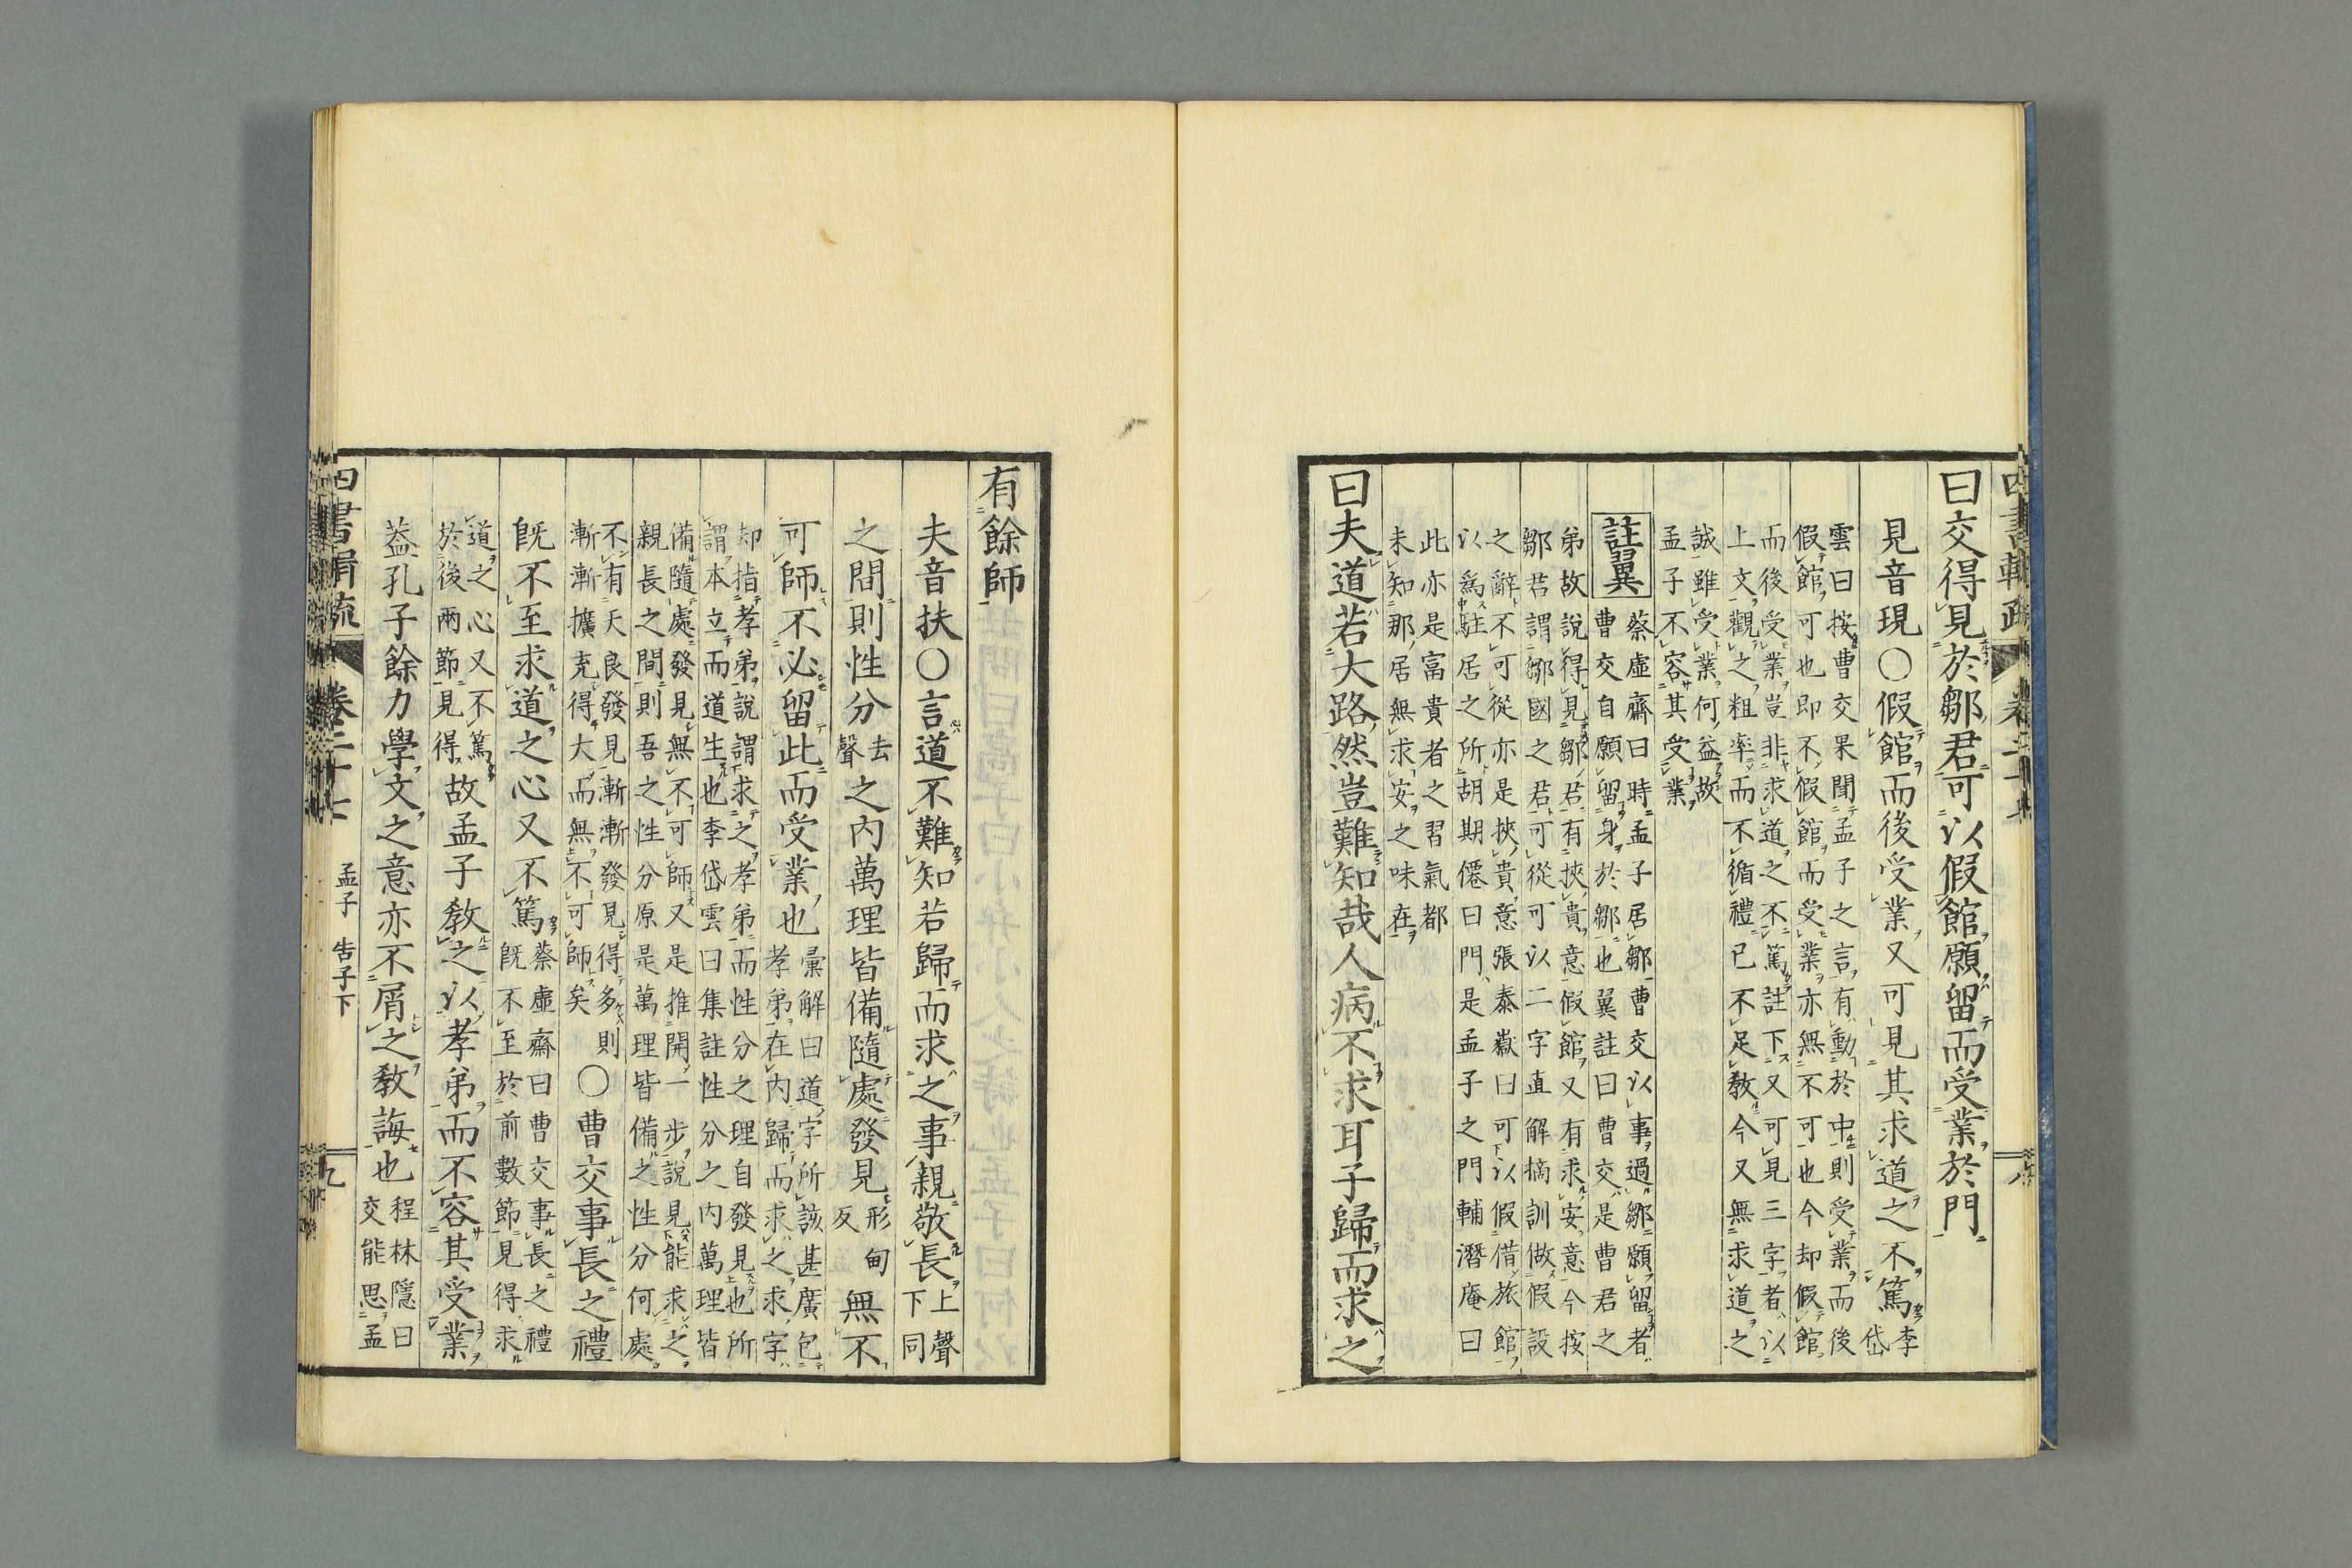 曰交得見於鄒君可以假館願留而受業於門
見音現○假館而後受業又可見其求道之不篤李岱
雲曰按曹交果聞孟子之言有動於中則受業而後
假館可也即不假館而受業亦無不可也今却假館
而後受業豈非求道之不篤註下又可見三字者以
上文觀之粗率而不循禮已不足敎今又無求道之
誠雖受業何益故
孟子不容其受業
註翼
蔡虛齋曰時孟子居鄒曹交以事過鄒願留者
曹交自願留身於鄒也翼註曰曹交是曹君之
弟故說得見鄒君有挾貴意假館又有求安意今按
鄒君謂鄒國之君可從可以二字直解摘訓做假設
之辭不可從亦是挾貴意張泰嶽曰可以假借旅館
以爲駐居之所胡期僊曰門是孟子之門輔潛庵曰
此亦是富貴者之習氣都
未知那居無求安之味在
曰夫道若大路然豈難知哉人病不求耳子歸而求之
四書輯疏 卷二十七 八
有餘師
夫音扶○言道不難知若歸而求之事親敬長上聲下同
之間則性分去聲之內萬理皆備隨處發見形甸反無不
可師不必留此而受業也
彙解曰道字所該甚廣包
孝弟在內歸而求之求字
却指孝弟說謂求之孝弟而性分之理自發見也所
謂本立而道生也李岱雲曰集註性分之內萬理皆
備隨處發見無不可師又是推開一步說見能求之
親長之間則吾之性分原是萬理皆備之性分何處
不有天良發見漸漸發見得多則
漸漸擴充得大而無不可師矣
○曹交事長之禮
旣不至求道之心又不篤
蔡虛齋曰曹交事長之禮
旣不至於前數節見得求
道之心又不篤
於後兩節見得
故孟子敎之以孝弟而不容其受業
葢孔子餘力學文之意亦不屑之敎誨也
程林隱曰
交能思孟
四書輯疏 卷二十七 孟子 告子下 九